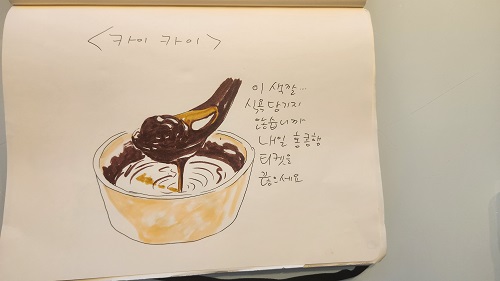 <카이 카이>
이 색깔...
식욕 당기지
않습니까
내일 홍콩행
티켓을
끊으세요